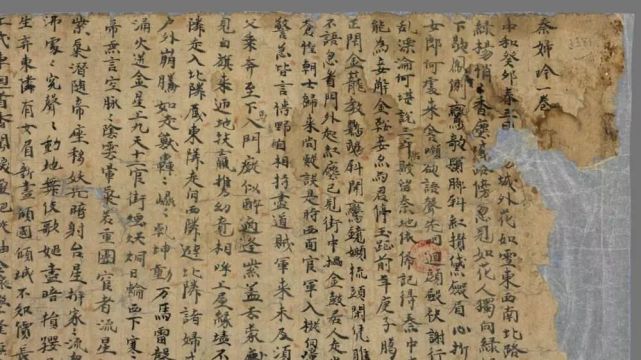 秦婦吟一卷
中和癸卯春三 城外花如雪東西南北路
綠楊悄 香塵滅路傍忽見如花人獨向綠
下歇鳳側鸞欹鬢脚斜紅攢黛斂眉心折
女郎何處来含嚬欲語聲先咽迴頭斂袂謝行
乱漂淪何堪說三年陷賊留秦地依俙記得秦中
能為妾解金鞍妾亦為君停玉趾前年庚子臈
正閉金籠教鸚鵡斜開鸞鏡嬾梳頭閑凭雕
不語忽看門外起紅塵已見街中擂金鼓居人走出
蒼惶朝士歸来尚疑誤是時西面官軍入擬
警急皆言博野自相持盡道賊軍来未及須
父乘奔至下馬入門癡似醉適逢紫蓋去蒙
見白旗来迊地扶羸携幼竟相呼上屋緣墻不
隣走入北隣蔵東隣走向西隣避北隣諸婦
戶外崩騰如走獸轟〻崐〻乾坤動万馬雷聲
涌火迸金星上九天十二官街煙烘烔日輪西下寒
帝無言空脉〻陰雲暈氣若重圍宦者流星
紫氣潛随帝座移妖光暗射台星拆家〻流
沸處〻冤聲〻動地舞伎歌姬盡暗捐嬰
生弃東隣有女眉新畫傾國傾城不知價長
戈 迴首香閨淚盈把